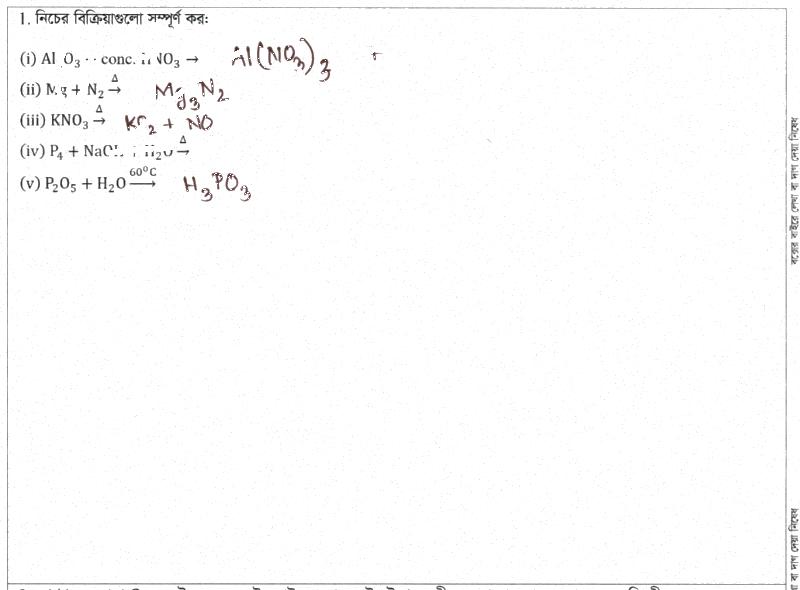 1. নিচের বিক্রিয়াগুলো সম্পূর্ণ কর:
(i) Al O₃ conc. NO₃ → Al(NO₃)₃
(ii) Mg + N₂ →Δ Mg₃N₂
(iii) KNO₃ →Δ + NO
(iv) P₄ + NaO H₂O →Δ
(v) P₂O₅ + H₂O →60⁰C H₃PO₃
বক্সের বাইরে লেখা বা দাগ দেয়া নিষেধ
বা দাগ দেয়া নিষেধ